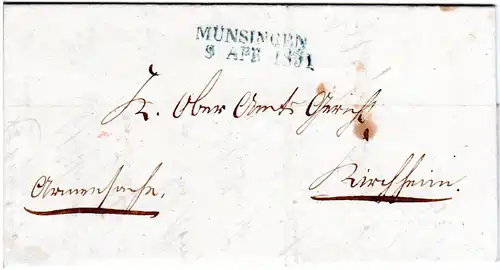 MÜNSINGEN
9 APR 1851
K. Ober Amts Gericht
Armensache.
Kirchheim.